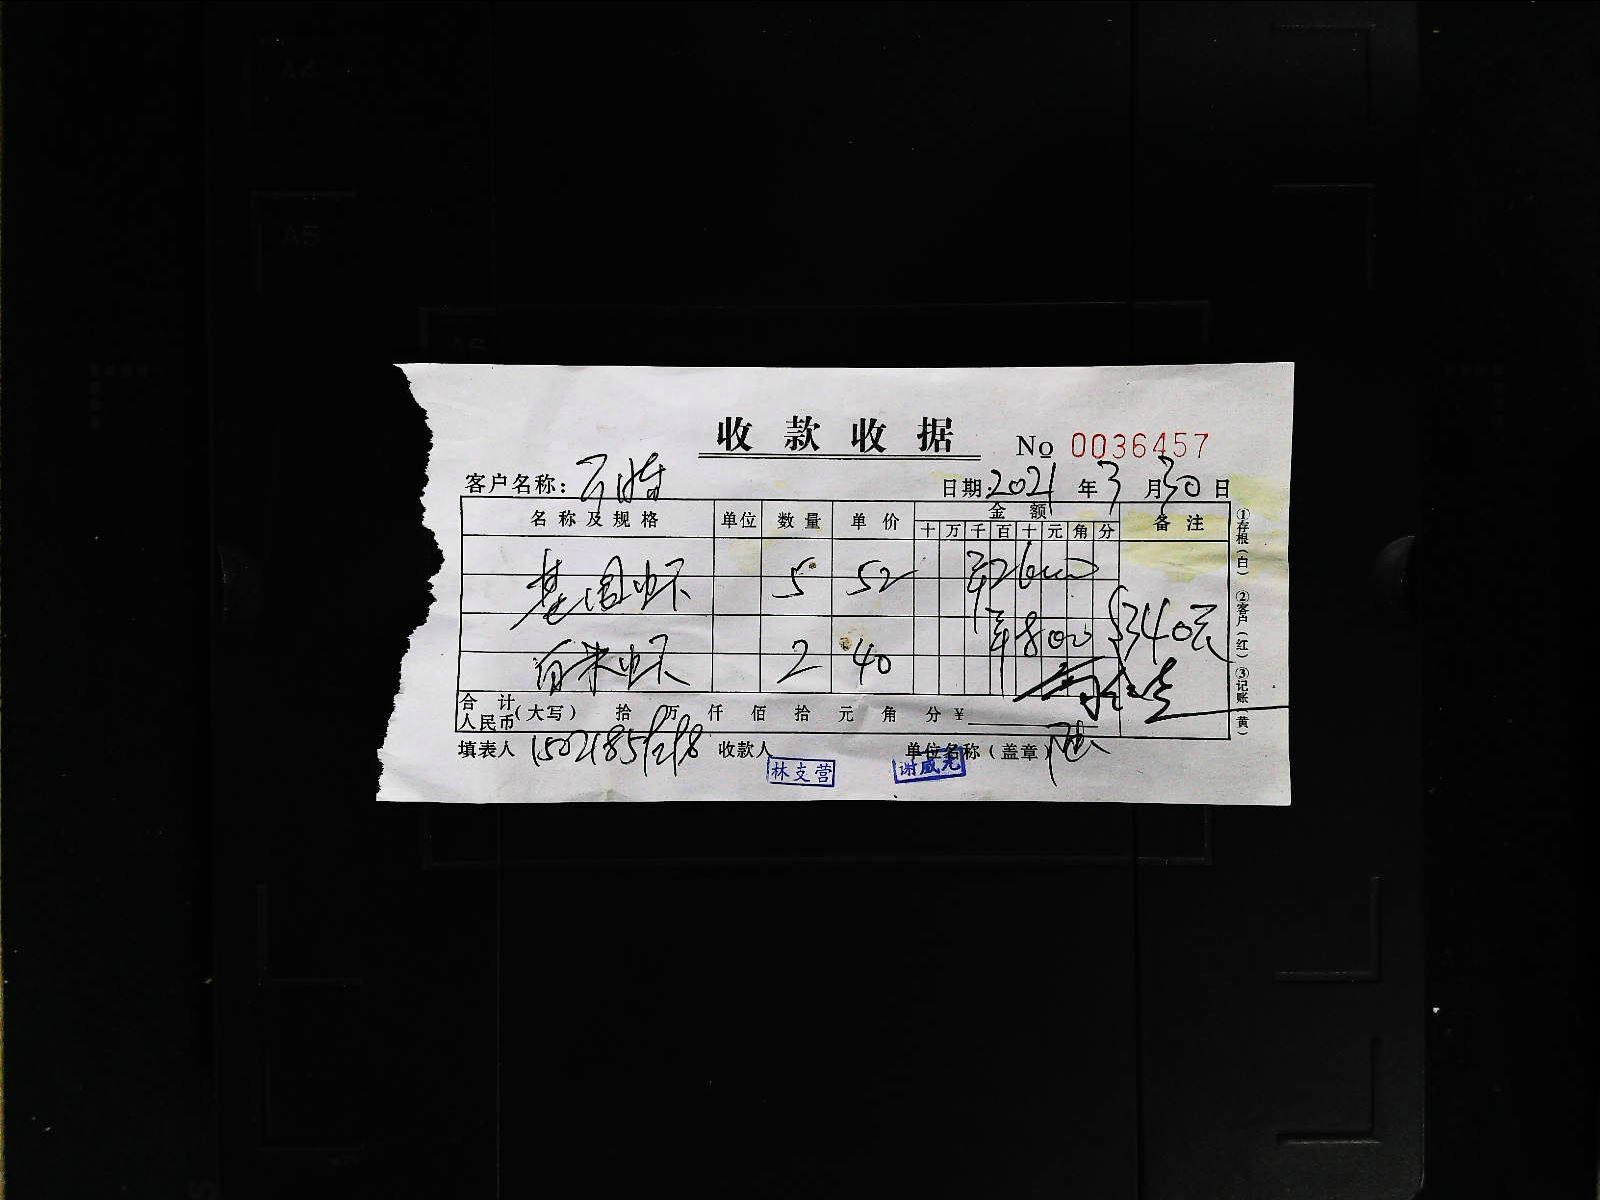 收款收据 No 0036457
客户名称: 日期: 2021 年 3 月 30 日
名称及规格 单位 数量 单价 金额 备注
十 万 千 百 十 元 角 分
基围虾 5 52 26000
白米虾 2 40 8000 $340元
合计人民币 (大写) 拾 万 仟 佰 拾 元 角 分 ¥
填表人 收款人 单位名称 (盖章) 陆
林支营 谢威尧
①存根(白) ②客户(红) ③记账(黄)
A5